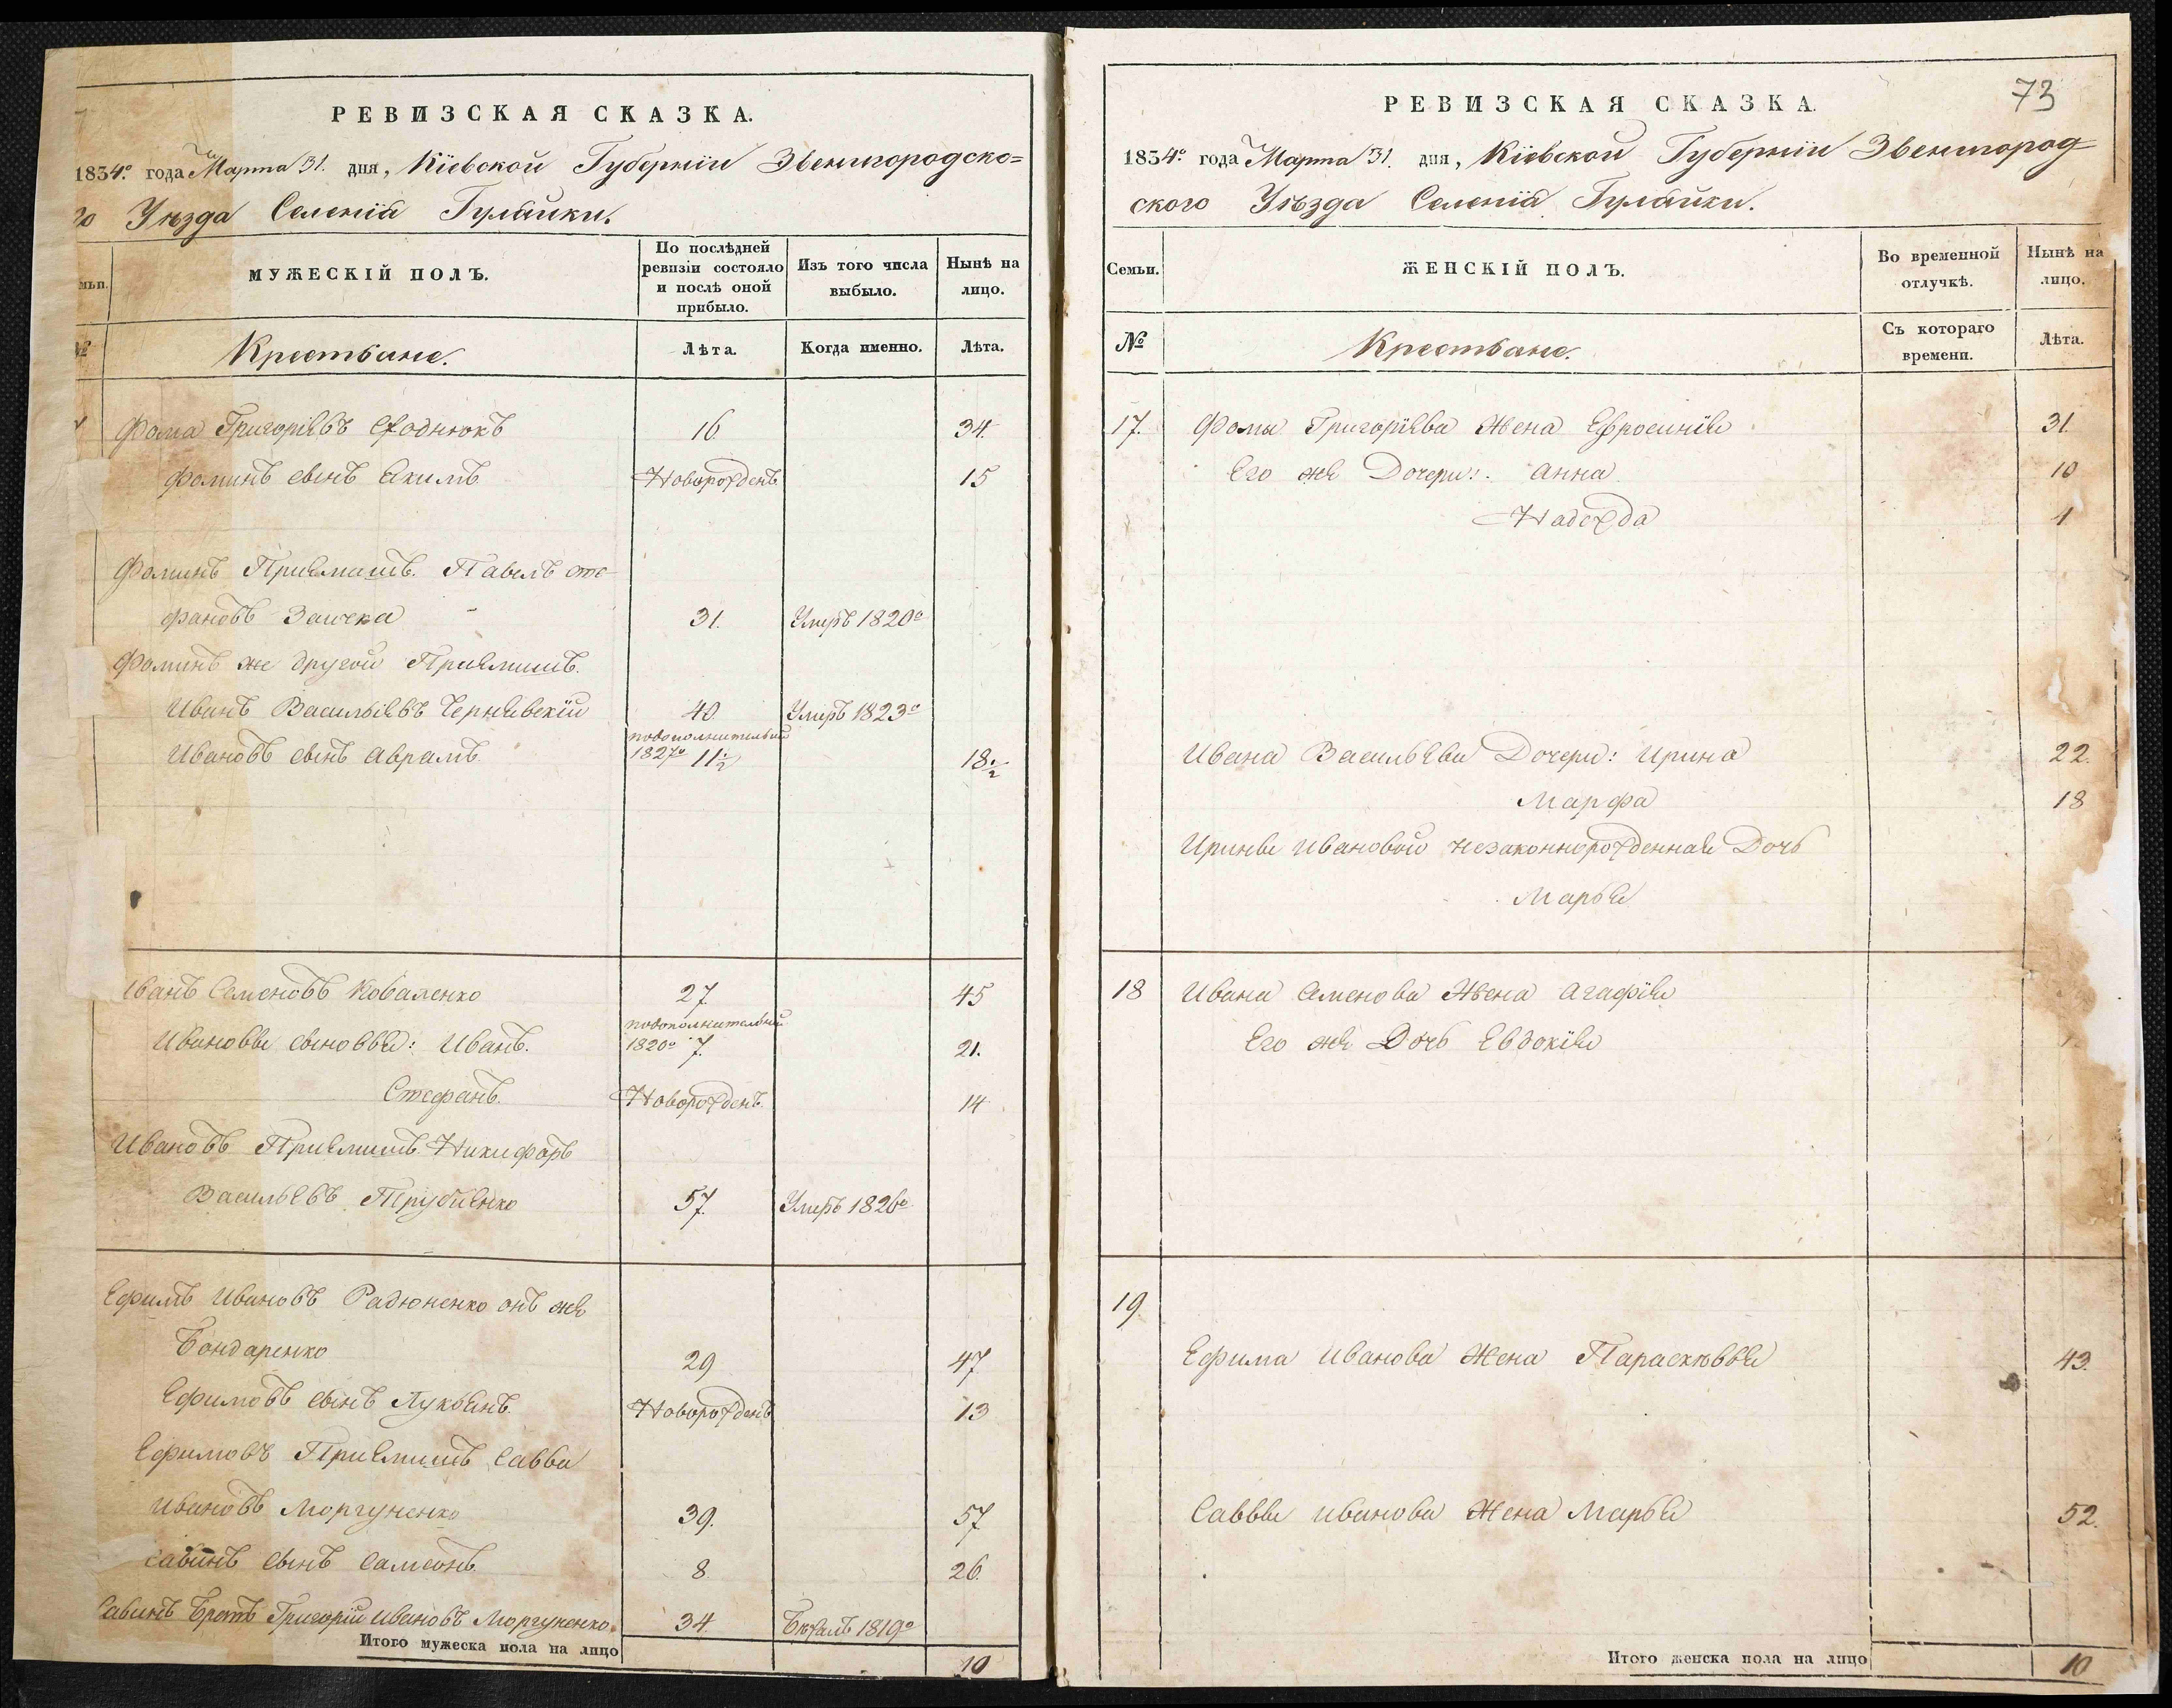 РЕВИЗСКАЯ СКАЗКА.
1834.º года Марта 31. дня, Кіевской Губерніи Звенигородско=
го Уѣзда Селенія Гулайки.
мьи.
МУЖЕСКІЙ ПОЛЪ.
По послѣдней ревизіи состояло и послѣ оной прибыло.
Изъ того числа выбыло.
Нынѣ на лицо.
№
Крестьяне.
Лѣта.
Когда именно.
Лѣта.
Фома Григорьевъ 16. 34.
Фоминъ сынъ Екимъ Новорожденъ 15
Фоминъ Приемишъ. Павелъ Сте-
фановъ Заичка 31. Умеръ 1820º
Фоминъ же другой Приемишъ.
Иванъ Васильевъ Чернявскій 40. Умеръ 1823º
Ивановъ сынъ Аврамъ. подополнительной 1827º 11½ 18½
Иванъ Семеновъ Коваленко 27 45
Ивановы сыновья: Иванъ. подополнительной 1820º 7. 21.
Стефанъ. Новорожденъ. 14
Ивановъ Приемишъ Никифоръ
Васильевъ 57. Умеръ 1826º
Ефимъ Ивановъ Радюненко онъ же
Бондаренко 29 47
Ефимовъ сынъ Лукьянъ. Новорожденъ 13
Ефимовъ Приемишъ Савва
Ивановъ Моргуненко 39. 57
Савинъ сынъ Самсонъ. 8 26.
Савинъ Братъ Григорій Ивановъ Моргуненко. 34. Бежалъ 1819º
Итого мужеска пола на лицо 10
73
РЕВИЗСКАЯ СКАЗКА.
1834.º года Марта 31. дня, Кіевской Губерніи Звенигород
ского Уѣзда Селенія Гулайки.
Семьи.
ЖЕНСКІЙ ПОЛЪ.
Во временной отлучкѣ.
Нынѣ на лицо.
№
Крестьяне.
Съ котораго времени.
Лѣта.
17. Фомы Григорьева Жена Ефросинія 31.
Его же Дочери: Анна 10
Надежда 1
Ивана Васильева Дочери: Ирина 22.
Марфа 18
Ирины Ивановой незаконнорожденная Дочь
Марья
18 Ивана Семенова Жена Агафія
Его же Дочь Евдокія
19.
Ефима Иванова Жена Парасковья 43.
Саввы Иванова Жена Марья 52.
Итого женска пола на лицо 10